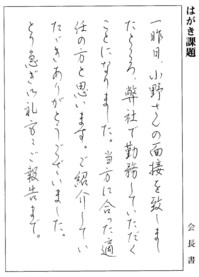 はがき課題
一昨日、小野さんの面接を致しまし
たところ、弊社で勤務していただく
ことになりました。当方に合った適
任の方と思います。ご紹介してい
ただきありがとうございました。
とり急ぎ御礼方々ご報告まで。
会長書